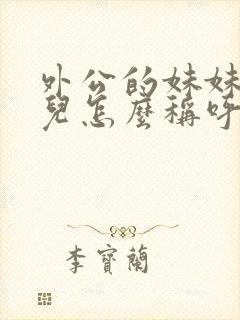 外公的妹妹
兒怎麼稱呼
李寶蘭